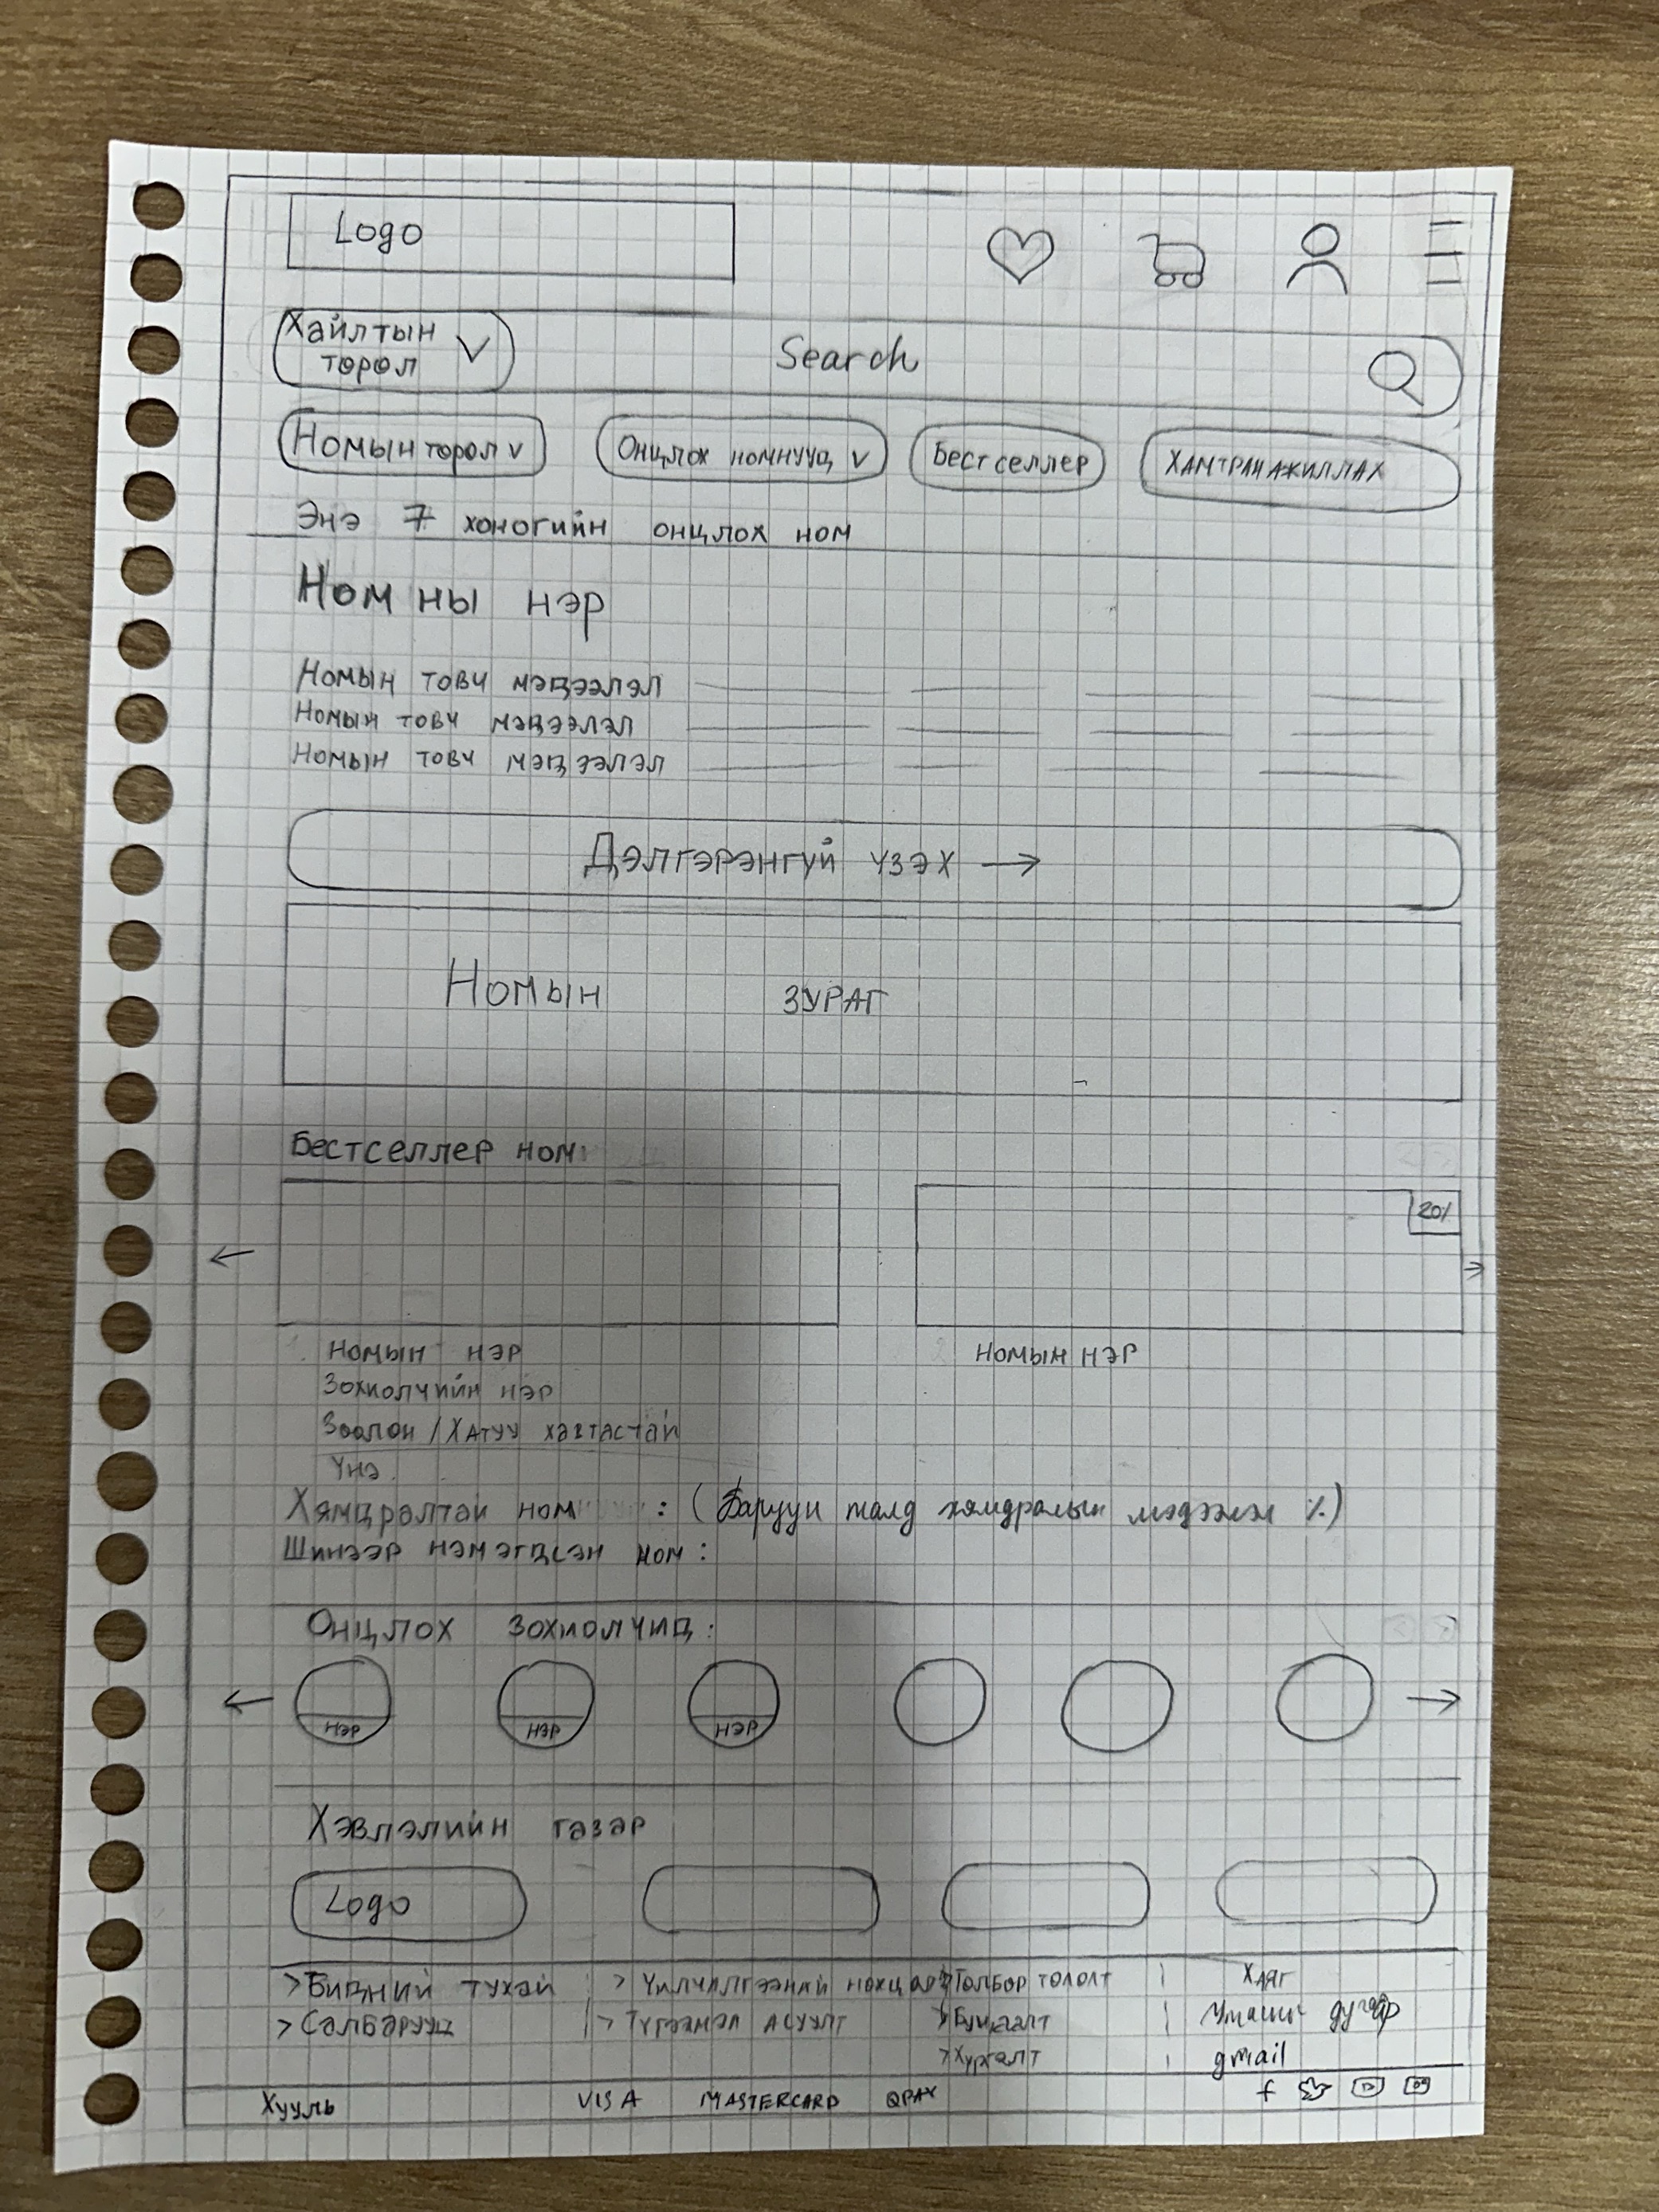 Logo
Хайлтын
төрөл
Search
Номын төрөл v
Онцлох номнууд v
Бестселлер
ХАМТРАН АЖИЛЛАХ
Энэ 7 хоногийн онцлох ном
Номны нэр
Номын товч мэдээлэл
Номын товч мэдээлэл
Номын товч мэдээлэл
Дэлгэрэнгүй үзэх →
Номын ЗУРАГ
Бестселлер ном
20%
← →
Номын нэр
Номын нэр
Зохиолчийн нэр
Зөөлөн / Хатуу хавтастай
Үнэ
Хямдралтай ном : (Баруун талд хямдралын мэдээлэл %)
Шинээр нэмэгдсэн ном :
Онцлох зохиолчид :
← нэр нэр нэр →
Хэвлэлийн газар
Logo
> Бидний тухай > Үйлчилгээний нөхцөл > Төлбөр төлөлт Хаяг
> Салбарууд > Түгээмэл асуулт > Буцаалт Утасны дугаар
> Хүргэлт gmail
Хууль VISA MASTERCARD QPAY f